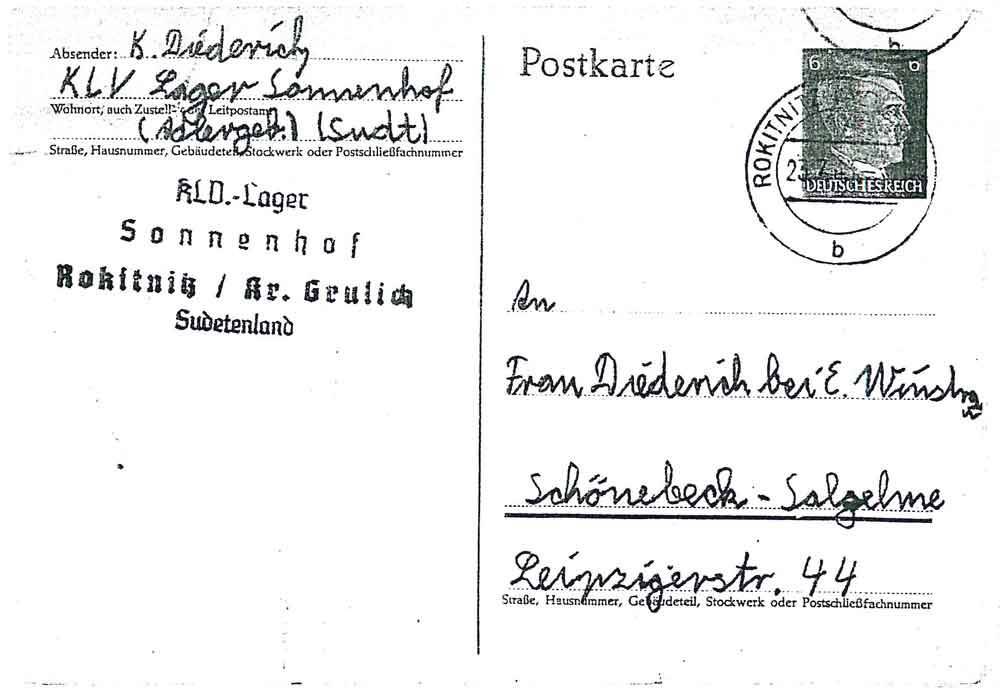 Absender: K. Diederich
KLV Lager Sonnenhof
Wohnort, auch Zustell- oder Leitpostamt
(Adlergeb.) (Sudt)
Straße, Hausnummer, Gebäudeteil, Stockwerk oder Postschließfachnummer
KLV.-Lager
Sonnenhof
Rokitnitz / Kr. Grulich
Sudetenland
Postkarte
6 6
DEUTSCHES REICH
ROKITNITZ
23.7.
b
b
An
Frau Diederich bei E.
Schönebeck - Salzelme
Leipzigerstr. 44
Straße, Hausnummer, Gebäudeteil, Stockwerk oder Postschließfachnummer